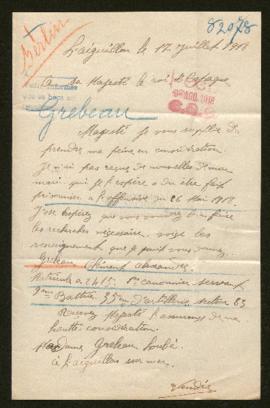 82078
Berlin
L'aiguillon le 12 Juillet 1918
A Sa Majesté le roi d'Espagne
Grebeau
Majesté je vous supplie de
prendre ma peine en considération
Je n'ai pas reçu de nouvelles de mon
mari qui je l'espère a du être fait
prisonnier à l'offensive du 26 Mai 1918.
J'ose espérer que vous voudrez bien faire
les recherches nécessaire voici les
renseignements que je puis vous donner
Grebeau Clément Alexandre
Matricule 2415. 1er canonnier servant
Batterie d'artillerie, secteur 83
Recevez Majesté l'assurance de ma
haute considération.
Madame Grebeau
à l'aiguillon sur mer
Vendée